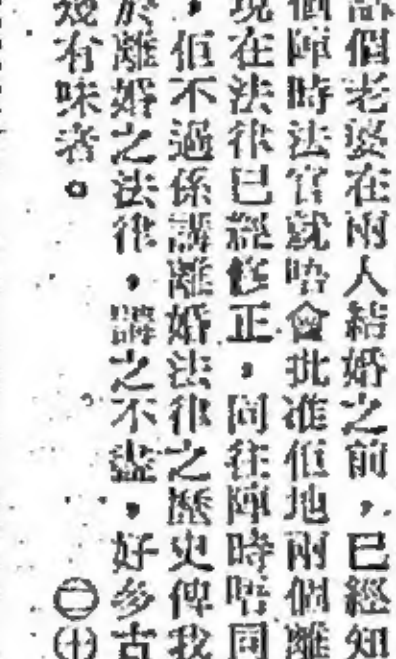 個老婆在兩人結婚之前，已經知
個陣時法官就唔會批准佢地兩個離
現在法律已經修正，同往陣時唔同
，佢不過係講離婚法律之歷史俾我
於離婚之法律，講之不盡，好多古
幾有味者。 ㊁㊉